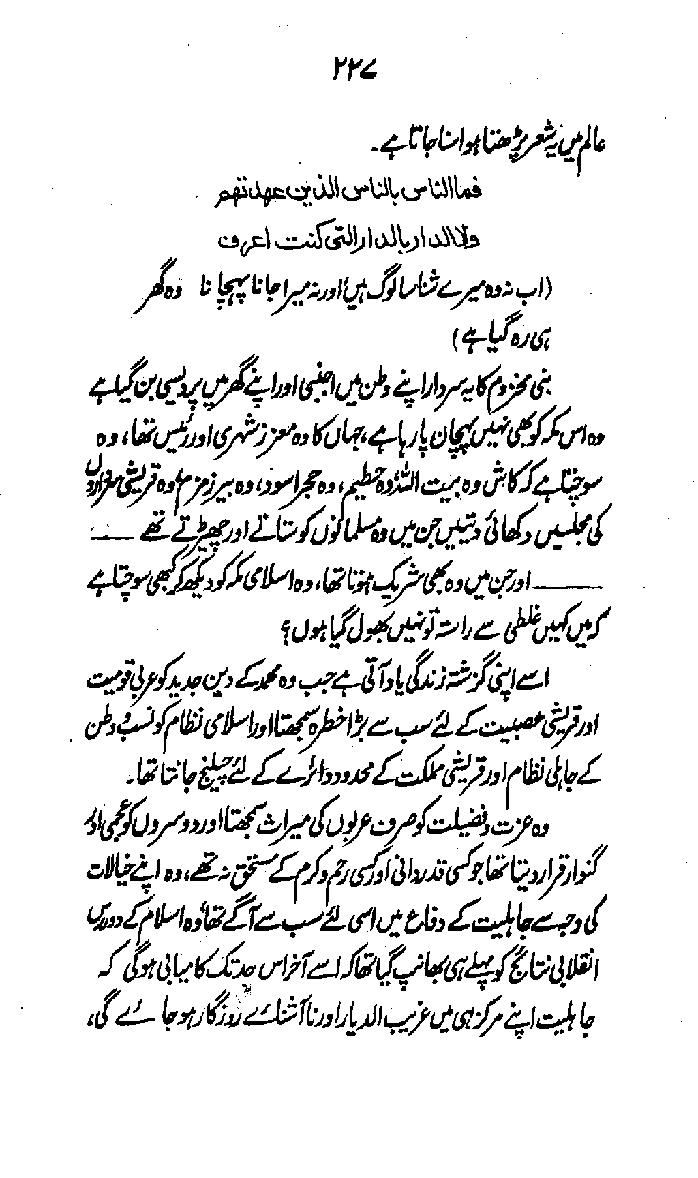 ۲۲۷
عالم میں یہ شعر پڑھتا ہوا سنا جاتا ہے۔
فما الناس بالناس الذین عھدتھم
ولا الدار بالدار التی کنت اعرف
(اب نہ وہ میرے شناسا لوگ ہیں اور نہ میرا جانا پہچانا وہ گھر
ہی رہ گیا ہے)
بنی مخزوم کا یہ سردار اپنے وطن میں اجنبی اور اپنے گھر میں پردیسی بن گیا ہے
وہ اس مکہ کو بھی نہیں پہچان پا رہا ہے، جہاں کا وہ معزز شہری اور رئیس تھا، وہ
سوچتا ہے کہ کاش وہ بیت اللہ وہ حطیم، وہ حجر اسود، وہ بیر زمزم وہ قریشی سرداروں
کی مجلسیں دکھائی دیتیں جن میں وہ مسلمانوں کو ستاتے اور چھیڑتے تھے ——
—— اور جن میں وہ بھی شریک ہوتا تھا، وہ اسلامی مکہ کو دیکھ کر کبھی سوچتا ہے
کہ میں کہیں غلطی سے راستہ تو نہیں بھول گیا ہوں؟
اسے اپنی گزشتہ زندگی یاد آتی ہے جب وہ محمد کے دین جدید کو عربی قومیت
اور قریشی عصبیت کے لئے سب سے بڑا خطرہ سمجھتا اور اسلامی نظام کو نسب و وطن
کے جاہلی نظام اور قریشی مملکت کے محدود دائرے کے لئے چیلنج جانتا تھا۔
وہ عزت و فضیلت کو صرف عربوں کی میراث سمجھتا اور دوسروں کو عجمی اور
گنوار قرار دیتا تھا جو کسی قدردانی اور کسی رحم و کرم کے مستحق نہ تھے، وہ اپنے خیالات
کی وجہ سے جاہلیت کے دفاع میں اسی لئے سب سے آگے تھا، وہ اسلام کے دوررس
انقلابی نتائج کو پہلے ہی بھانپ گیا تھا کہ اسے آخر اس حد تک کامیابی ہوگی کہ
جاہلیت اپنے مرکز ہی میں غریب الدیار اور ناآشنائے روزگار ہو جائے گی،